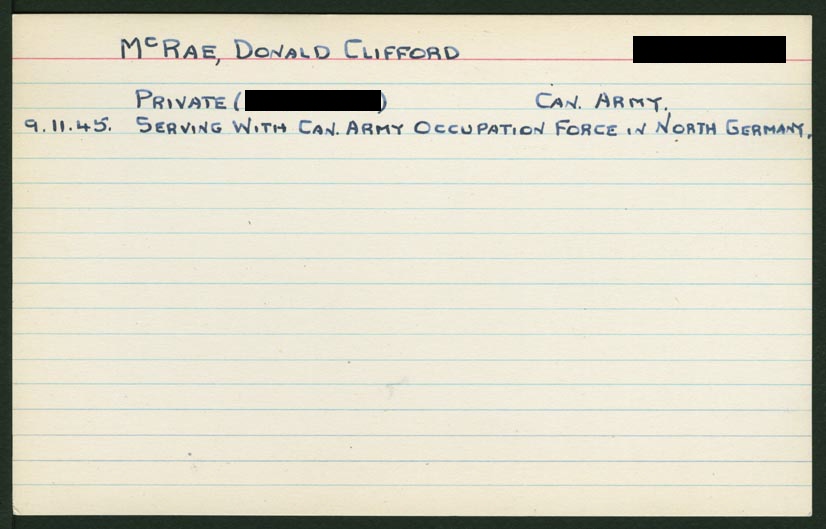 McRae, Donald Clifford
Private ( ) Can. Army.
9.11.45. Serving With Can. Army Occupation Force in North Germany.